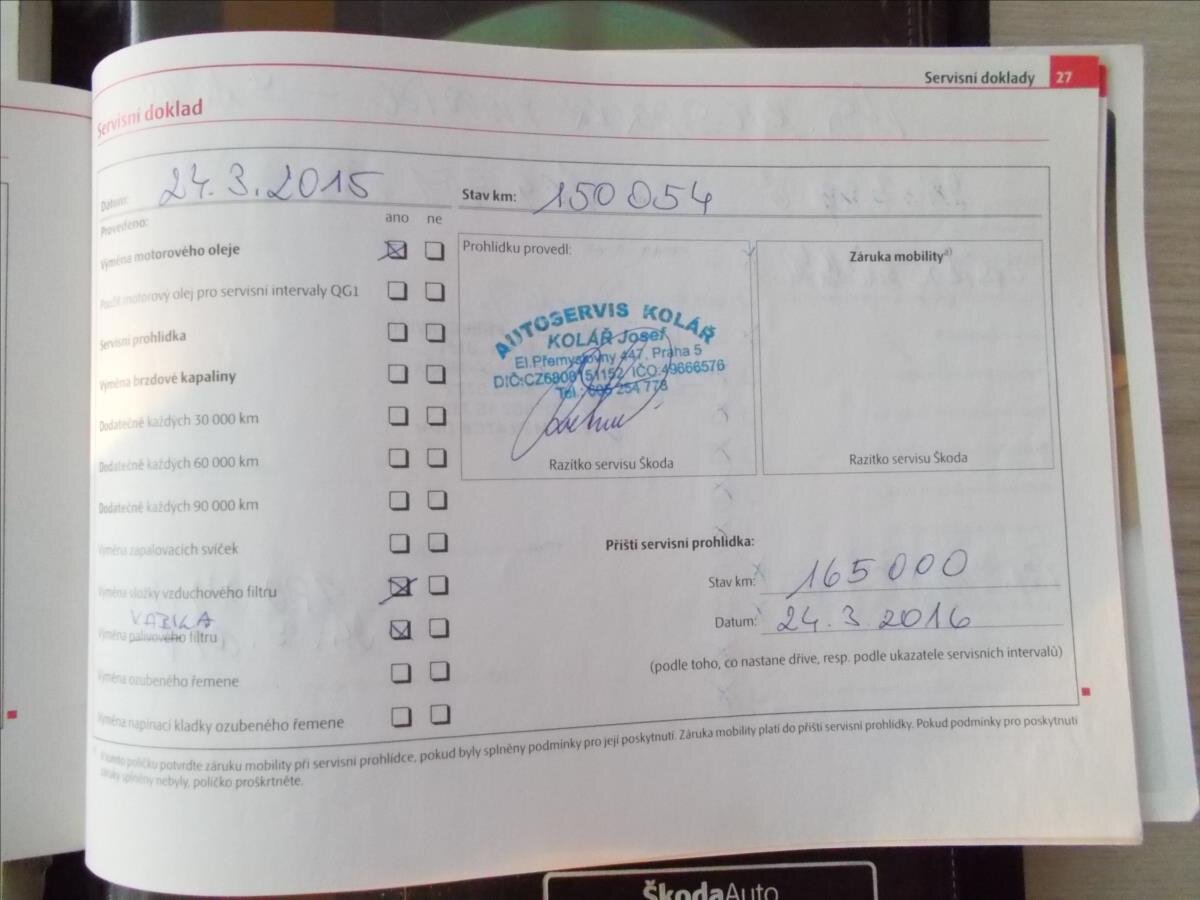 Servisní doklady 27
Servisní doklad
Datum: 24.3.2015 Stav km: 150 054
Provedeno: ano ne
Výměna motorového oleje
Použit motorový olej pro servisní intervaly QG1
Servisní prohlídka
Výměna brzdové kapaliny
Dodatečně každých 30 000 km
Dodatečně každých 60 000 km
Dodatečně každých 90 000 km
Výměna zapalovacích svíček
Výměna vložky vzduchového filtru
Výměna palivového filtru
Výměna ozubeného řemene
Výměna napínací kladky ozubeného řemene
Prohlídku provedl:
AUTOSERVIS KOLÁŘ
KOLÁŘ Josef
El.Přemyslovny 447, Praha 5
DIČ:CZ6808151152 IČO:49666576
Tel.: 254 778
Razítko servisu Škoda
Záruka mobility a)
Razítko servisu Škoda
Příští servisní prohlídka:
Stav km: 165 000
Datum: 24.3.2016
(podle toho, co nastane dříve, resp. podle ukazatele servisních intervalů)
a) V tomto políčku potvrďte záruku mobility při servisní prohlídce, pokud byly splněny podmínky pro její poskytnutí. Záruka mobility platí do příští servisní prohlídky. Pokud podmínky pro poskytnutí
záruky splněny nebyly, políčko proškrtněte.
ŠkodaAuto